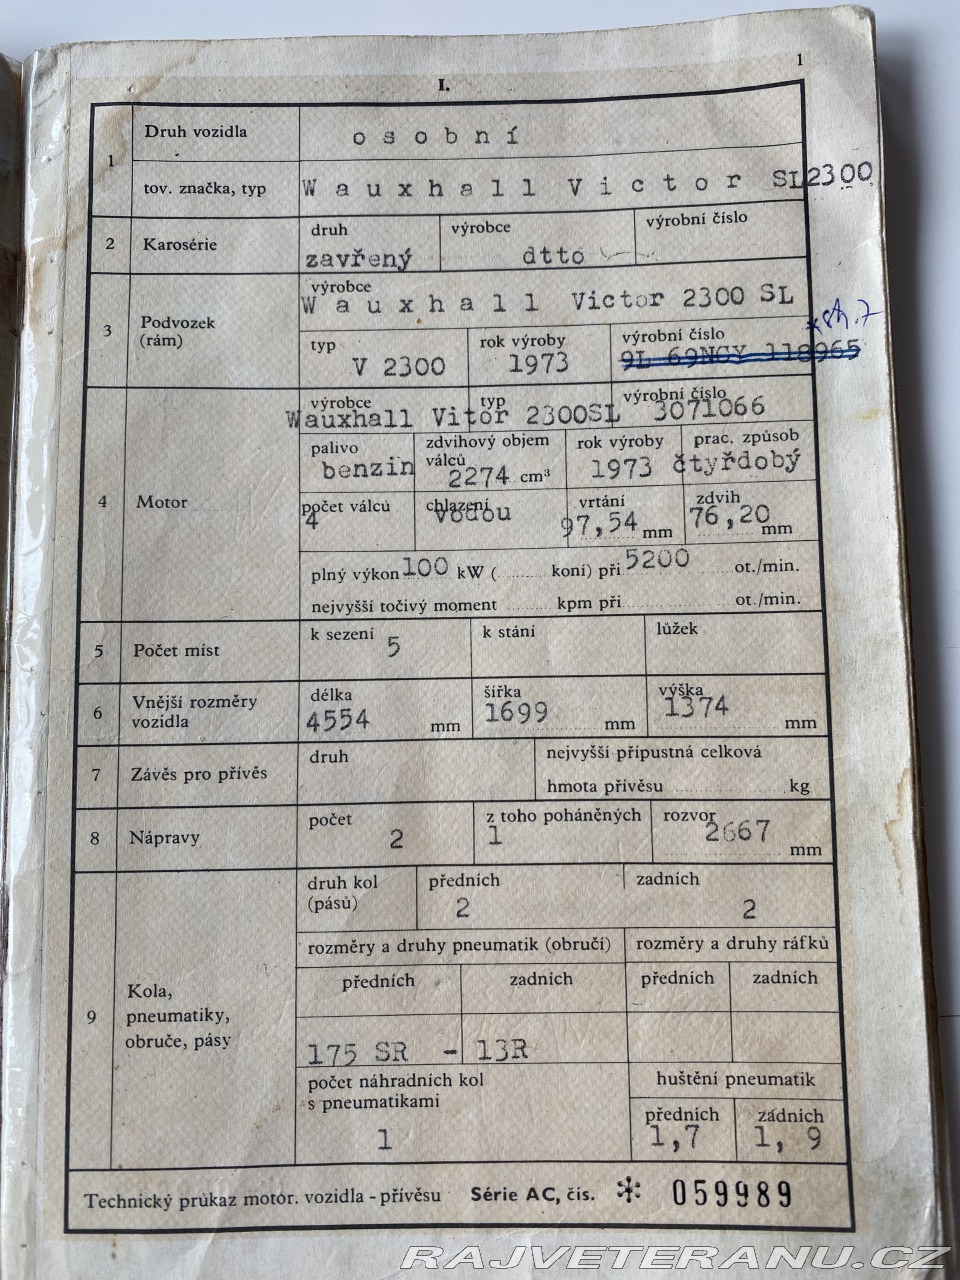 1
I.
1
Druh vozidla
osobní
tov. značka, typ
Wauxhall Victor SL2300
2
Karosérie
druh
zavřený
výrobce
dtto
výrobní číslo
3
Podvozek
(rám)
výrobce
Wauxhall Victor 2300 SL
typ
V 2300
rok výroby
1973
výrobní číslo
9L 69NCY 118965
4
Motor
výrobce
typ
výrobní číslo
Wauxhall Vitor 2300SL 3071066
palivo
benzin
zdvihový objem
válců
2274 cm³
rok výroby
1973
prac. způsob
čtyřdobý
počet válců
4
chlazení
vodou
vrtání
97,54 mm
zdvih
76,20 mm
plný výkon 100 kW ( koní) při 5200 ot./min.
nejvyšší točivý moment kpm při ot./min.
5
Počet míst
k sezení
5
k stání
lůžek
6
Vnější rozměry
vozidla
délka
4554 mm
šířka
1699 mm
výška
1374 mm
7
Závěs pro přívěs
druh
nejvyšší přípustná celková
hmota přívěsu kg
8
Nápravy
počet
2
z toho poháněných
1
rozvor
2667 mm
9
Kola,
pneumatiky,
obruče, pásy
druh kol
(pásů)
předních
2
zadních
2
rozměry a druhy pneumatik (obručí)
rozměry a druhy ráfků
předních
zadních
předních
zadních
175 SR - 13R
počet náhradních kol
s pneumatikami
1
huštění pneumatik
předních
1,7
zadních
1, 9
Technický průkaz motor. vozidla - přívěsu Série AC, čís. 059989
RAJVETERANU.CZ